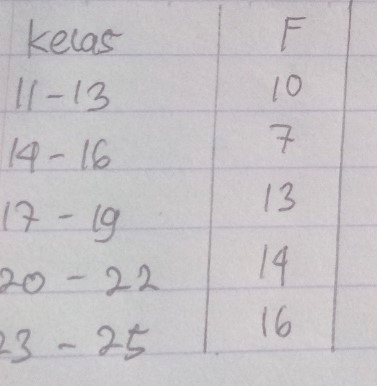 Kelas F
11-13 10
14-16 7
17-19 13
20-22 14
23-25 16